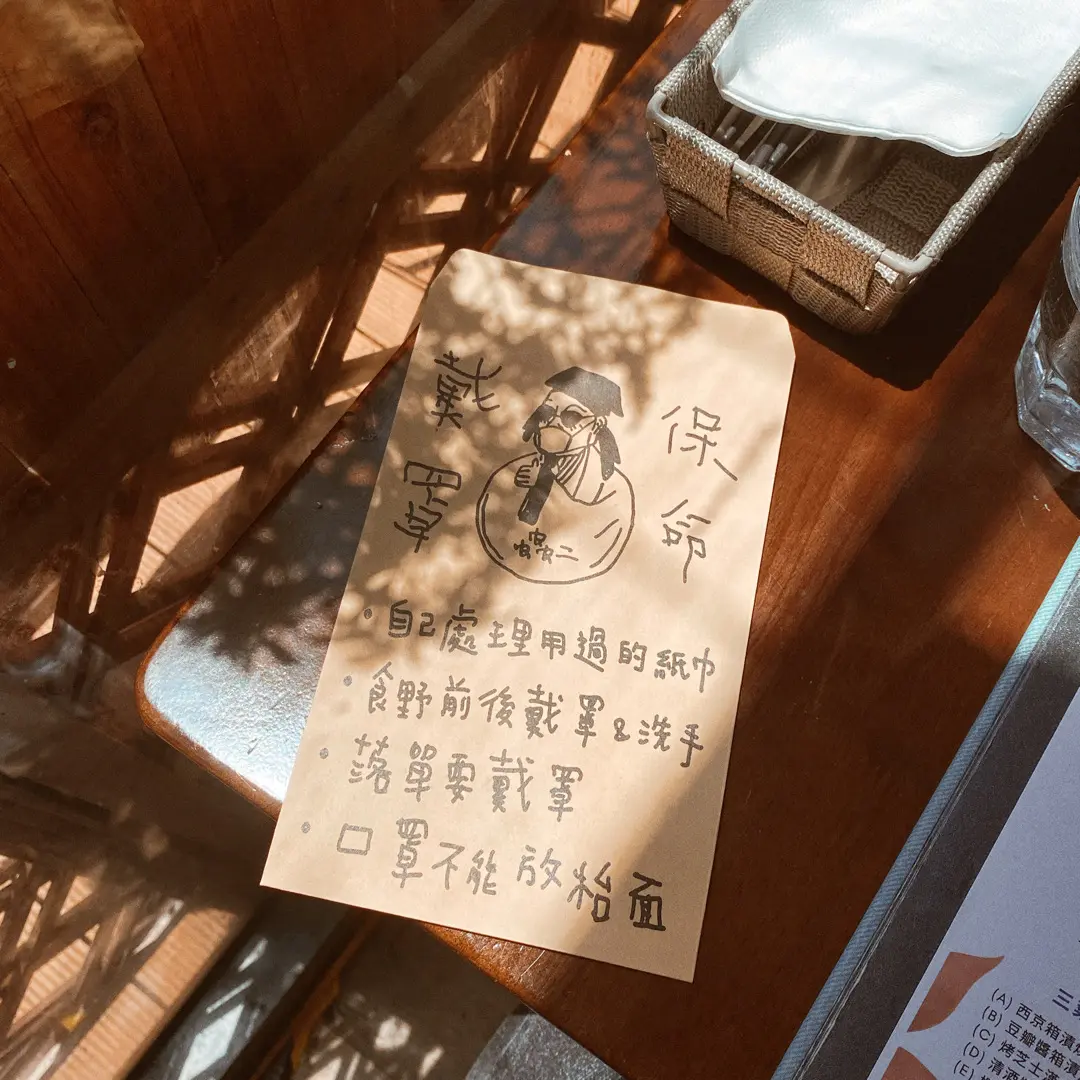 戴罩
保命
蟲二
• 自己處理用過的紙巾
• 食野前後戴罩&洗手
• 落單要戴罩
• 口罩不能放枱面
三
(A) 西京
(B) 豆瓣醬
(C) 烤芝士
(D) 清酒
(E)